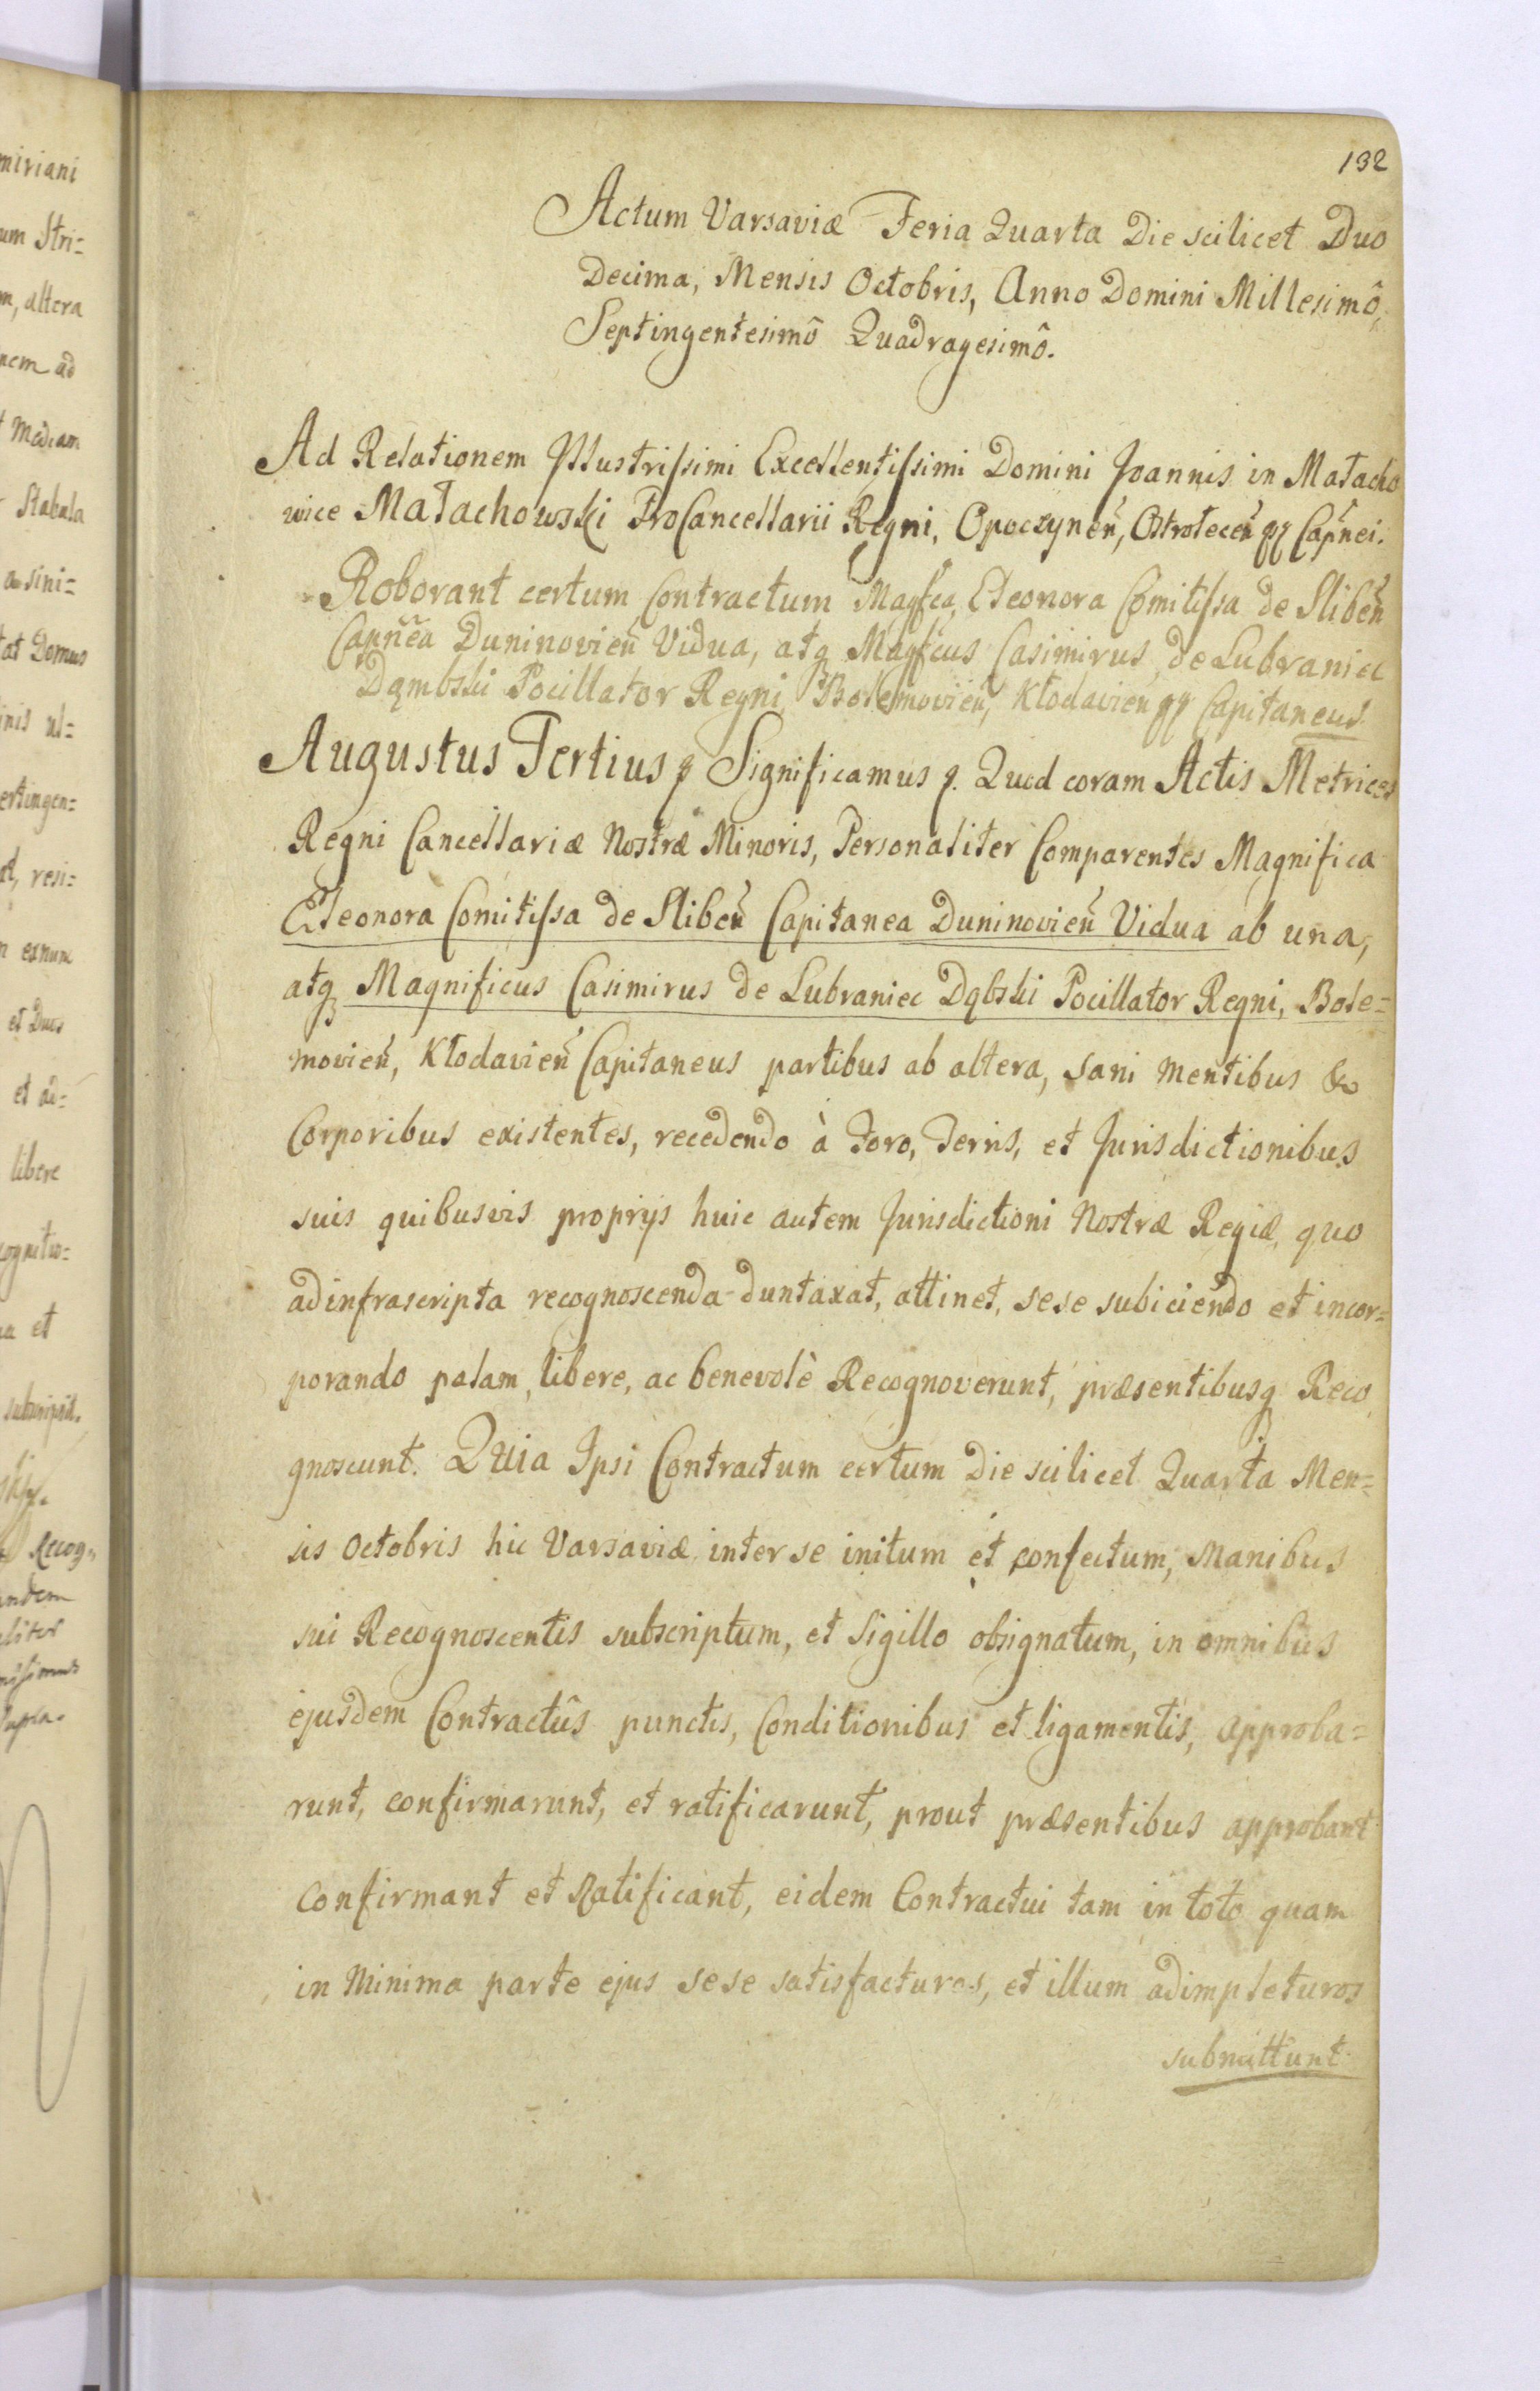 132
Actum Varsaviæ Feria Quarta Die scilicet Duo
Decima, Mensis Octobris, Anno Domini Millesimô,
Septingentesimô Quadragesimô.
Ad Relationem Jllustrissimi Excellentissimi Domini Joannis in Małacho
wice Małachowski ProCancellarii Regni, Opoczyneñ, Ostrołeceñ qq Capñei.
Roborant certum Contractum Magfca, Eleonora Comitissa de Slibeñ
Capñea Duninovieñ Vidua, atq Magfcus Casimirus de Lubraniec
Dąmbski Pocillator Regni Bolemovieñ, Kłodavieñ qq Capitaneus
Augustus Tertius q Significamus q. Quod coram Actis Metrices
Regni Cancellariæ Nostræ Minoris, Personaliter Comparentes Magnifica
Eleonora Comitissa de Slibeñ Capitanea Duninovieñ Vidua ab una,
atq Magnificus Casimirus de Lubraniec Dąbski Pocillator Regni, Bole=
movieñ, Kłodavieñ Capitaneus partibus ab altera, sani mentibus &
Corporibus existentes, recedendo à Foro, Terris, et Jurisdictionibus
suis quibusvis proprijs huic autem Jurisdictioni Nostræ Regiæ, quo
ad infrascripta recognoscenda duntaxat, attinet, sese subiciendo et incor=
porando palam, libere, ac benevolè Recognoverunt, præsentibusq Reco
gnoscunt. Quia Ipsi Contractum certum Die scilicet Quarta Men=
sis Octobris hic Varsaviæ inter se initum et confectum, Manibus
sui Recognoscentis subscriptum, et Sigillo obsignatum, in omnibus
ejusdem Contractûs punctis, Conditionibus et ligamentis, approba=
runt, confirmarunt, et ratificarunt, prout præsentibus approbant
Confirmant et Ratificant, eidem Contractui tam in toto quam
in Minima parte ejus sese satisfacturos, et illum adimpleturos
submittunt